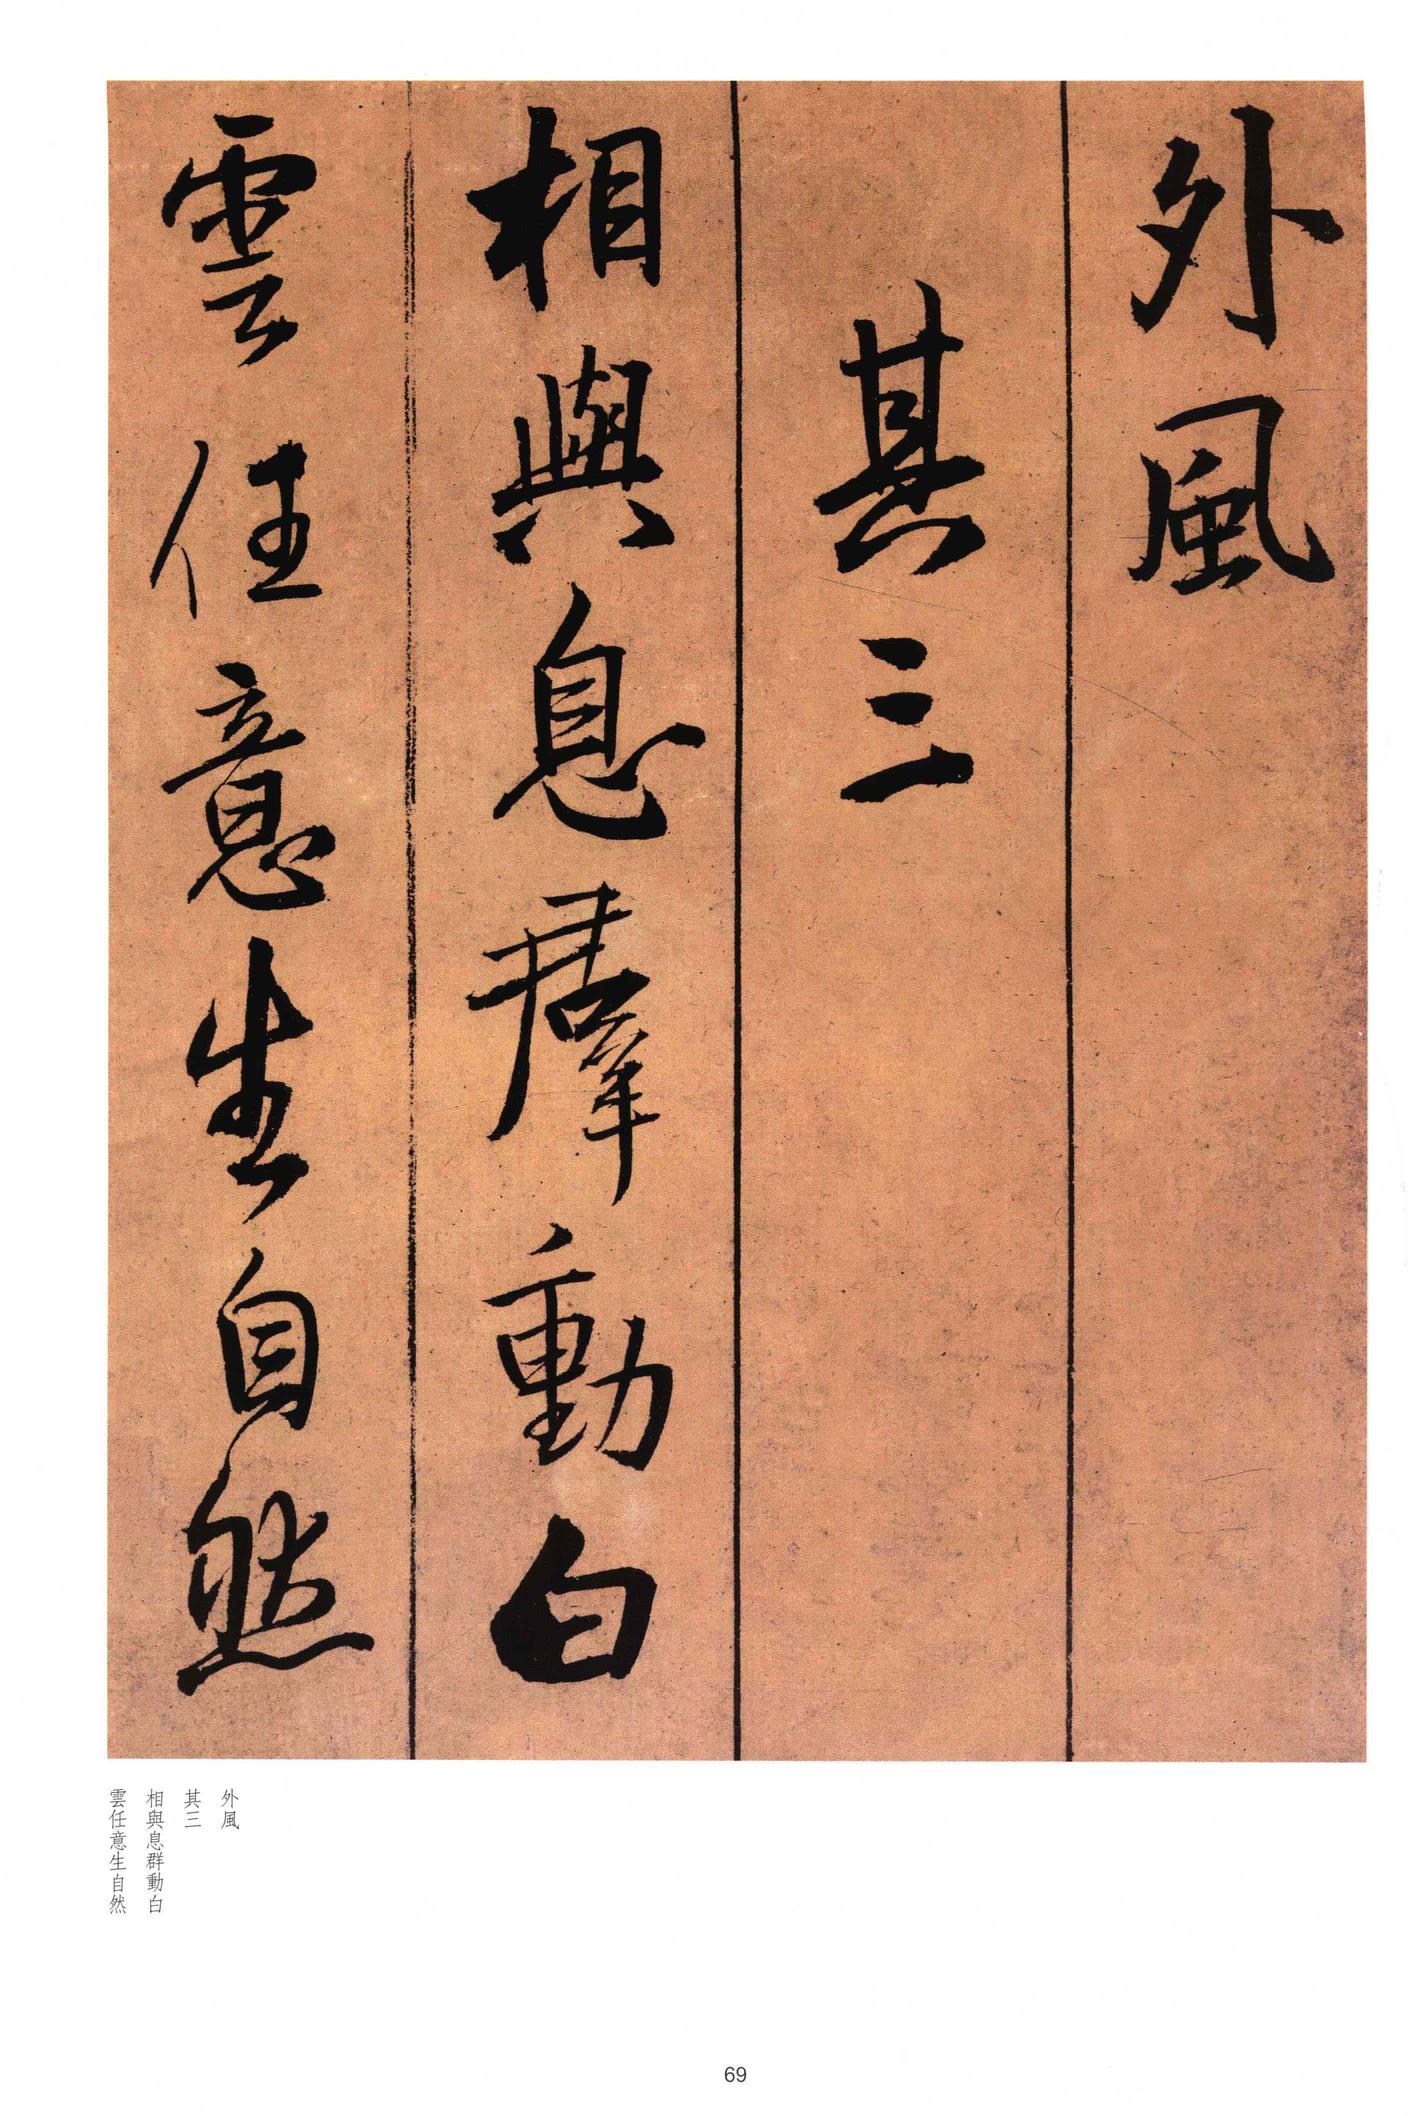 外風
其三
相與息群動白
雲任意生自然
外風
其三
相與息群動白
雲任意生自然
69